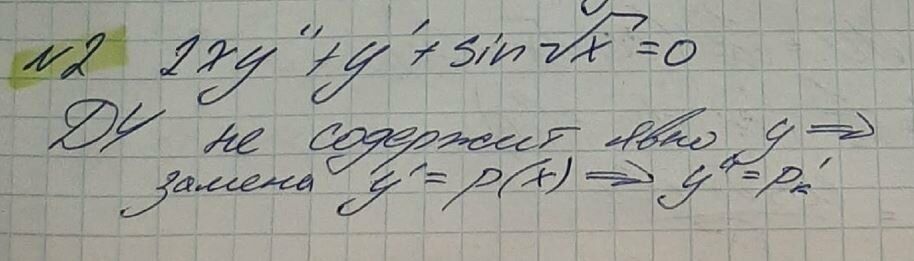 №2 2xy'' + y' + sin√x = 0
ДУ не содержит явно y ⇒
замена y' = p(x) ⇒ y'' = p'ₓ